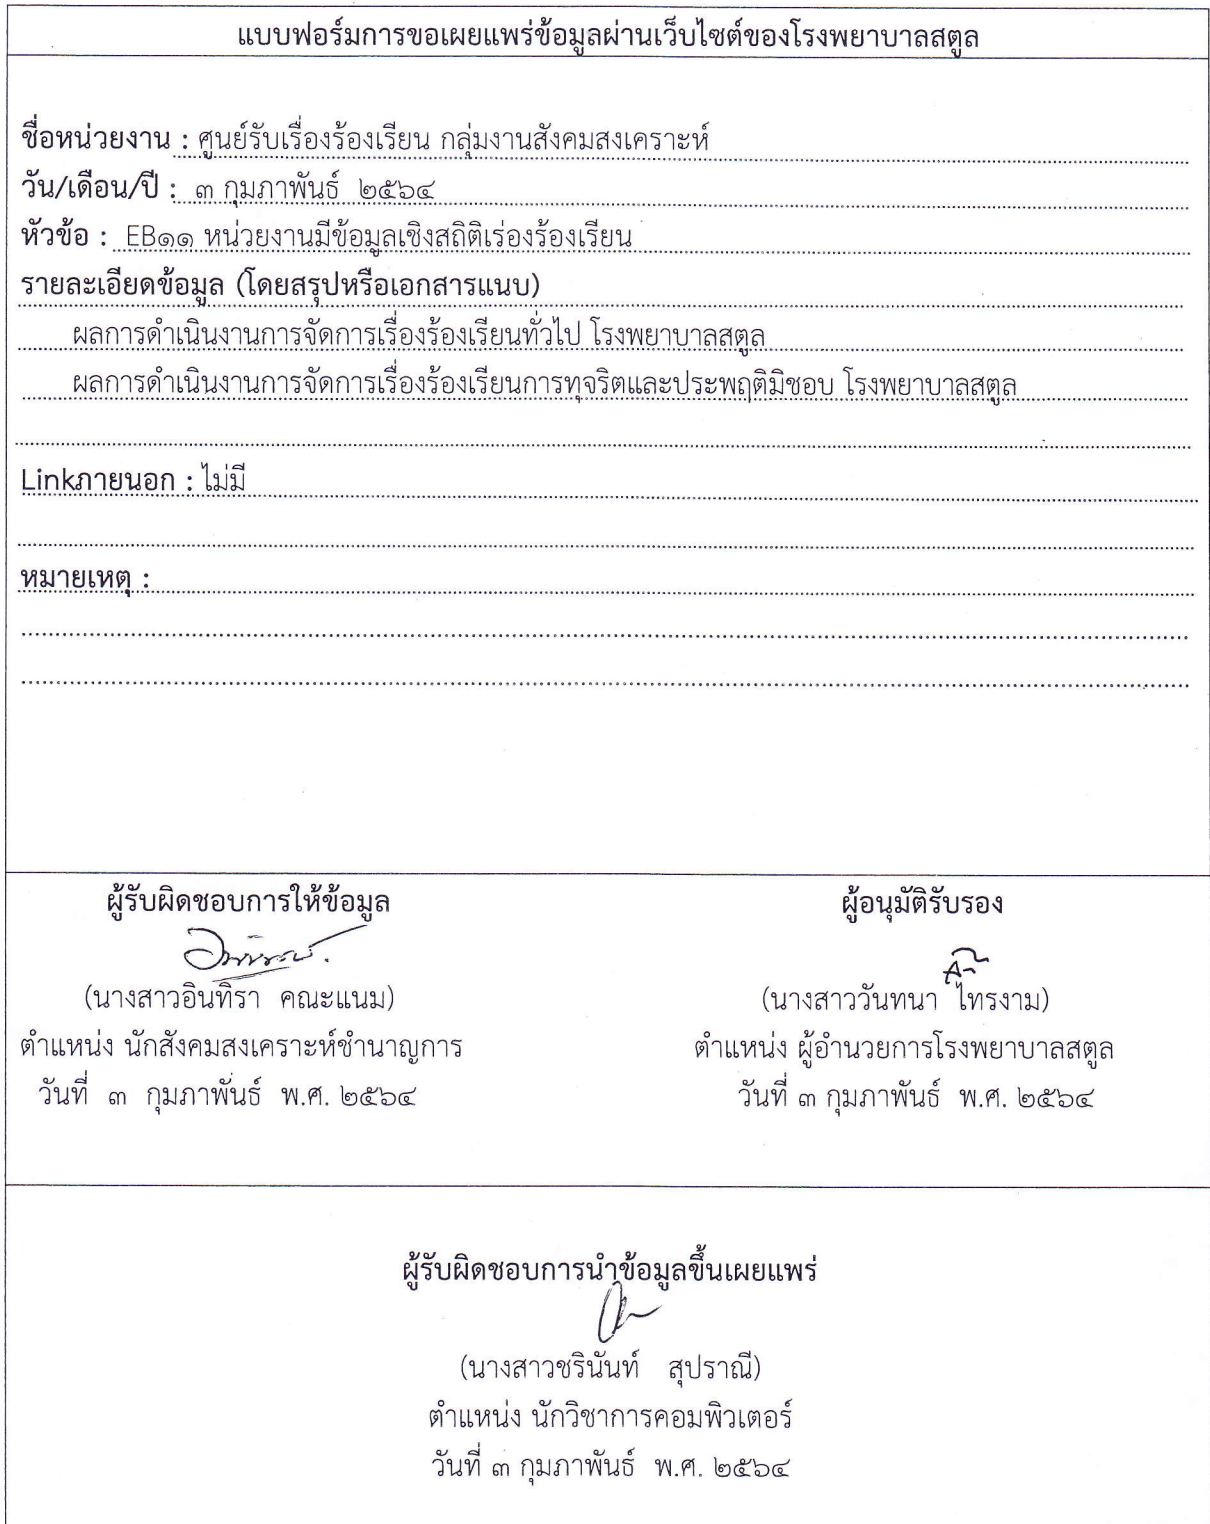 แบบฟอร์มการขอเผยแพร่ข้อมูลผ่านเว็บไซต์ของโรงพยาบาลสตูล
ชื่อหน่วยงาน : ศูนย์รับเรื่องร้องเรียน กลุ่มงานสังคมสงเคราะห์
วัน/เดือน/ปี : ๓ กุมภาพันธ์ ๒๕๖๔
หัวข้อ : EB๑๑ หน่วยงานมีข้อมูลเชิงสถิติเร่องร้องเรียน
รายละเอียดข้อมูล (โดยสรุปหรือเอกสารแนบ)
ผลการดำเนินงานการจัดการเรื่องร้องเรียนทั่วไป โรงพยาบาลสตูล
ผลการดำเนินงานการจัดการเรื่องร้องเรียนการทุจริตและประพฤติมิชอบ โรงพยาบาลสตูล
Linkภายนอก : ไม่มี
หมายเหตุ :
ผู้รับผิดชอบการให้ข้อมูล
(นางสาวอินทิรา คณะแนม)
ตำแหน่ง นักสังคมสงเคราะห์ชำนาญการ
วันที่ ๓ กุมภาพันธ์ พ.ศ. ๒๕๖๔
ผู้อนุมัติรับรอง
(นางสาววันทนา ไทรงาม)
ตำแหน่ง ผู้อำนวยการโรงพยาบาลสตูล
วันที่ ๓ กุมภาพันธ์ พ.ศ. ๒๕๖๔
ผู้รับผิดชอบการนำข้อมูลขึ้นเผยแพร่
(นางสาวชรินันท์ สุปราณี)
ตำแหน่ง นักวิชาการคอมพิวเตอร์
วันที่ ๓ กุมภาพันธ์ พ.ศ. ๒๕๖๔